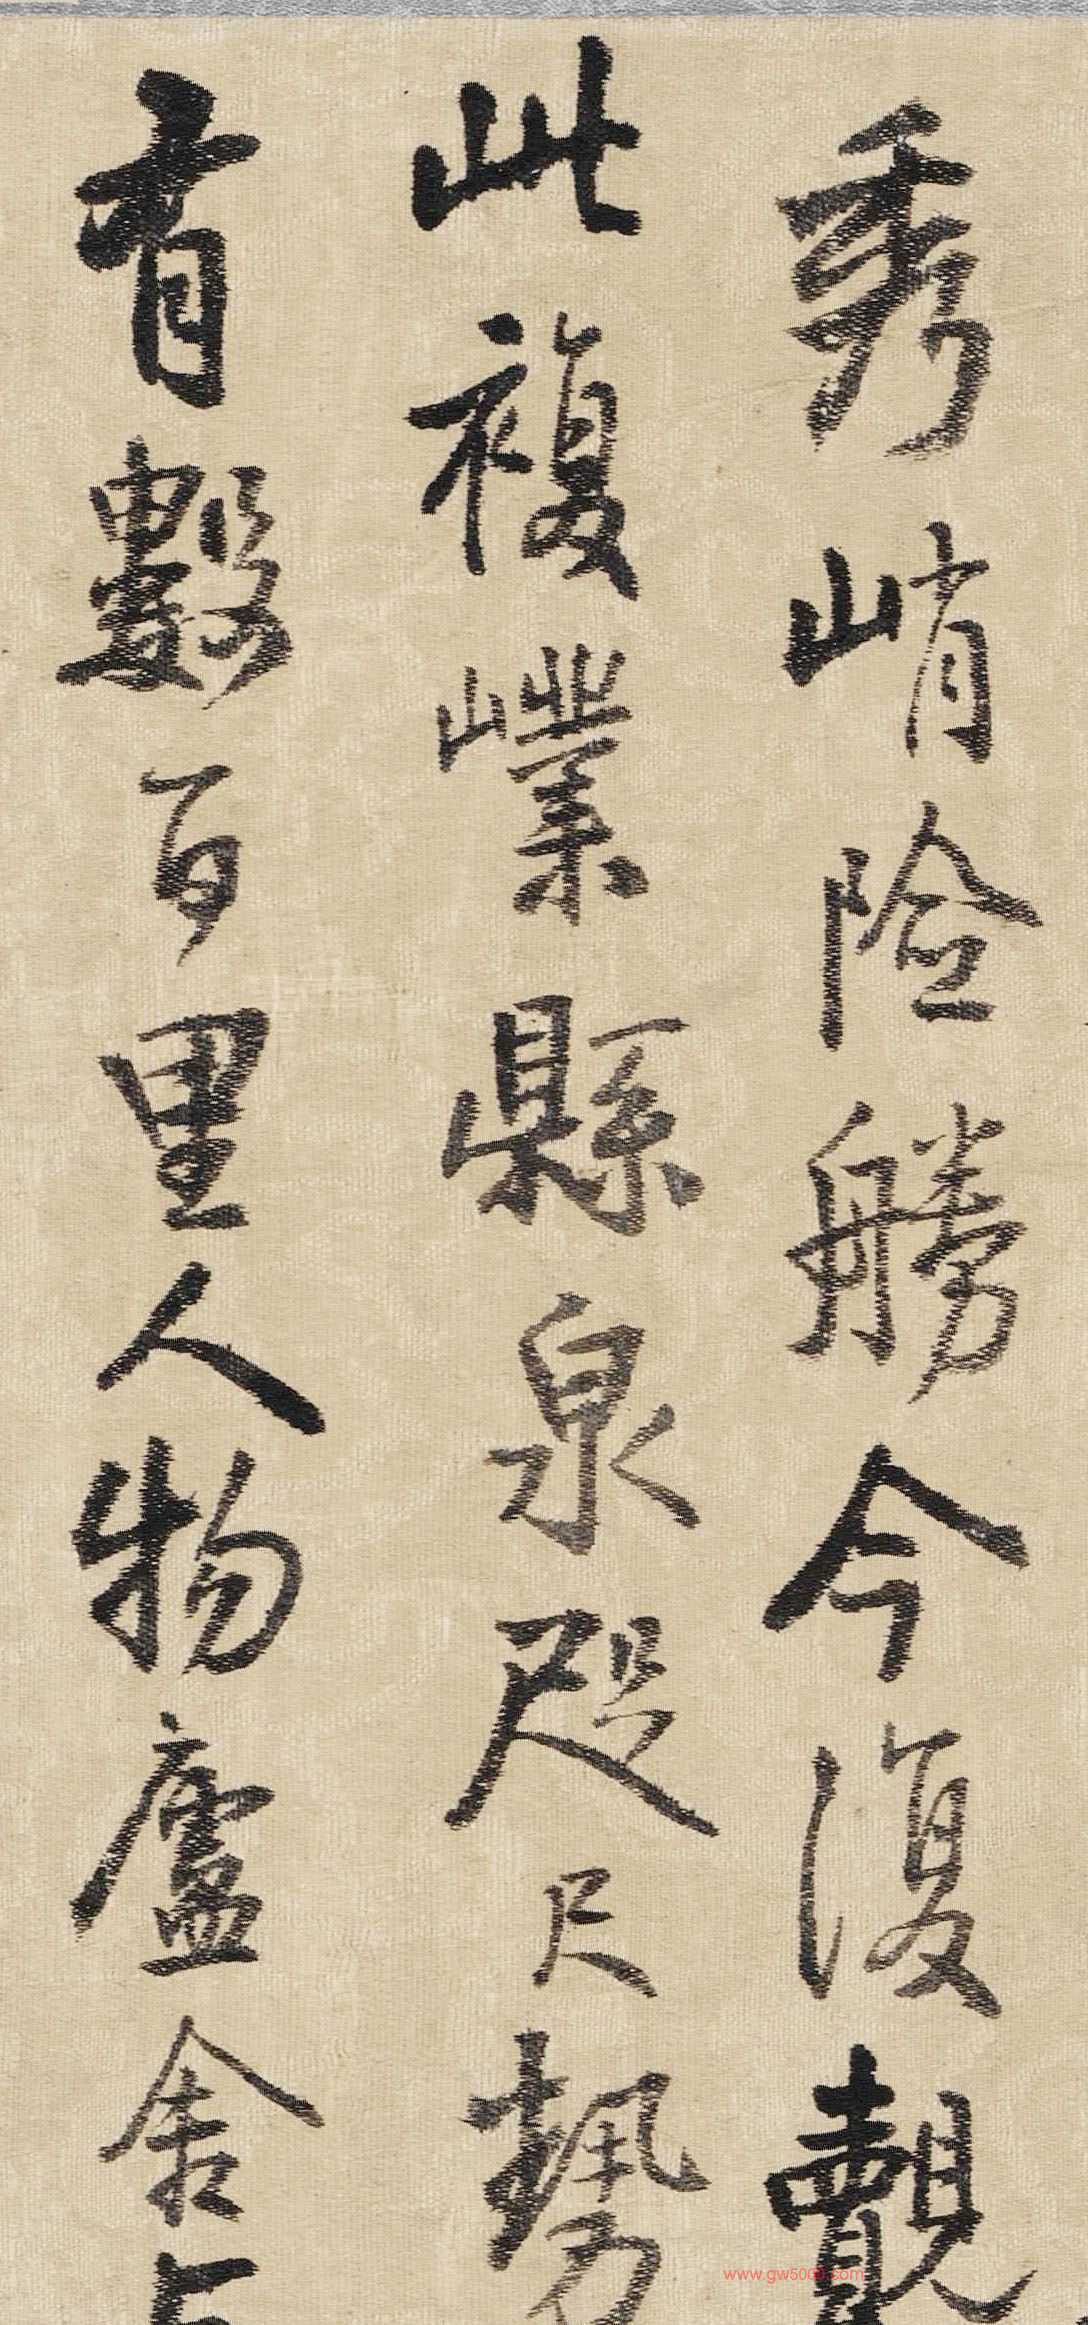 秀峭險勝今復覿
此複嶪縣泉咫尺勢
有數百里人物廬舍
www.gw5000.com